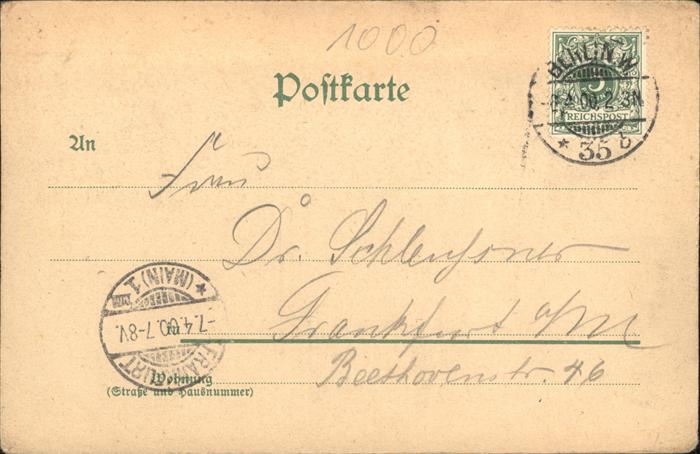 1000
Postkarte
BERLIN.W.
4.00.2-3N
* 35 b
5
REICHSPOST
An
Frau
Dr. Schleussner
Frankfurt a/M
Beethovenstr. 46
in
Wohnung
(Straße und Hausnummer)
FRANKFURT
* (MAIN) 1
-7.4.00.7-8V.